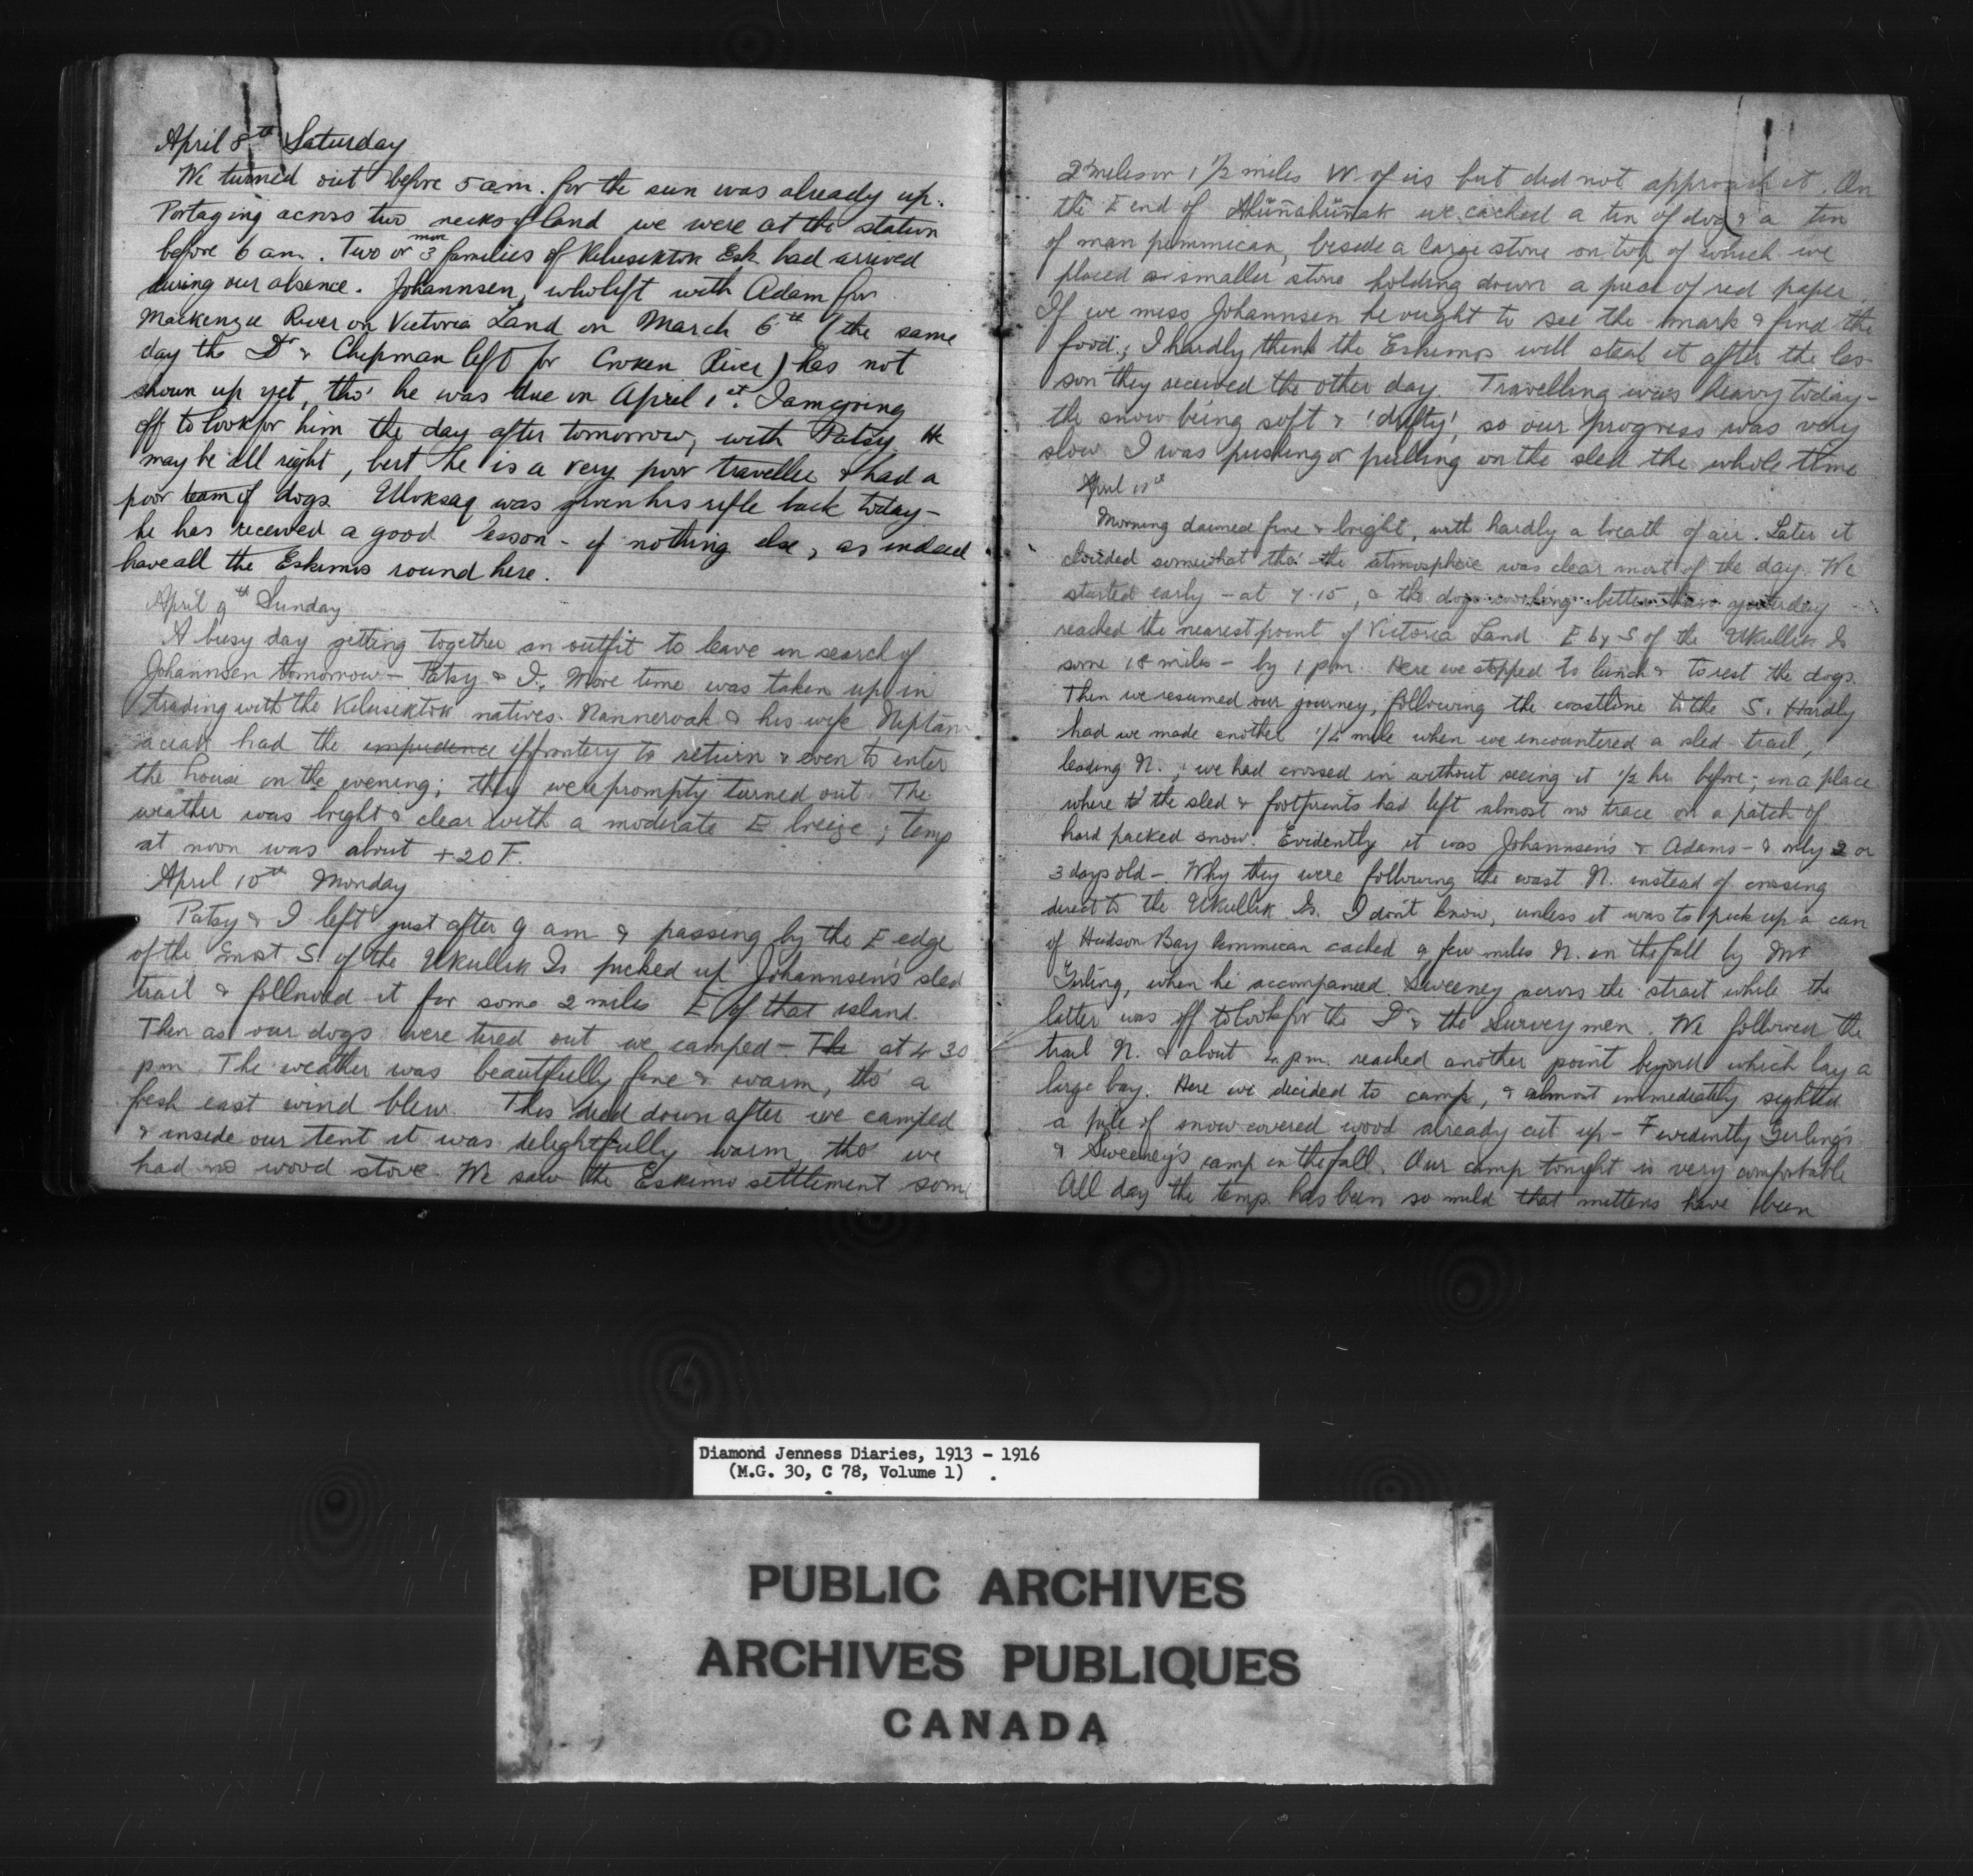 April 8th Saturday
We turned out before 5 am. for the sun was already up.
Portaging across two necks of land we were at the station
before 6 am. Two or 3 more families of Kilusiktok Esk. had arrived
during our absence. Johannsen, who left with Adam for
Mackenzie River on Victoria Land on March 6th (the same
day the Dr & Chipman left for Croker River) has not
shown up yet, tho' he was due in April 1st. I am going
off to look for him the day after tomorrow, with Patsy. He
may be all right, but he is a very poor traveller & had a
poor team of dogs. Uloksaq was given his rifle back today -
he has received a good lesson - if nothing else, as indeed
have all the Eskimos round here.
April 9th Sunday
A busy day getting together an outfit to leave in search of
Johannsen tomorrow - Patsy & I. More time was taken up in
trading with the Kilusiktok natives. Nanneroak & his wife
had the impudence effrontery to return & even to enter
the house in the evening; they were prompty turned out. The
weather was bright & clear with a moderate E breeze; temp
at noon was about +20 F.
April 10th Monday
Patsy & I left just after 9 am & passing by the E edge
of the most S. of the Ukullik Is picked up Johannsen's sled
trail & followed it for some 2 miles E of that island.
Then as our dogs were tired out we camped - The at 4 30
pm. The weather was beautfully fine & warm, tho' a
fresh east wind blew. This died down after we camped
& inside our tent it was delightfully warm, tho' we
had no wood stove. We saw the Eskimo settlement some
2 miles or 1 1/2 miles W of us but did not approach it. On
the E end of we cached a tin of dog & a tin
of man pemmican, beside a large stone on top of which we
placed a smaller stone holding down a piece of red paper.
If we miss Johannsen he ought to see the mark & find the
food; I hardly think the Eskimos will steal it after the les-
son they received the other day. Travelling was heavy today -
the snow being soft & 'drifty', so our progress was very
slow. I was pushing or pulling on the sled the whole time
April 11th
Morning dawned fine & bright, with hardly a breath of air. Later it
clouded somewhat tho' the atmosphere was clear most of the day. We
started early - at 7.15, & the dogs working better than yesterday
reached the nearest point of Victoria Land E by S of the Ukullik Is
some 18 miles - by 1 pm. Here we stopped to lunch & to rest the dogs.
Then we resumed our journey, following the coastline to the S. Hardly
had we made another 1/4 mile when we encountered a sled trail,
leading N.; we had crossed in without seeing it 1/2 hr before, in a place
where the sled & footprints had left almost no trace on a patch of
hard packed snow. Evidently it was Johannsen's & Adams - & only 2 or
3 days old - Why they were following the coast N. instead of crossing
direct to the Ukullik Is. I don't know, unless it was to pick up a can
of Hudson Bay Pemmican cached a few miles N. in the fall by Mr
Girling, when he accompanied Sweeney across the strait while the
latter was off to look for the Dr & the Survey men. We followed the
trail N. & about 4 pm. reached another point beyond which lay a
large bay. Here we decided to camp, & almost immediately sighted
a pile of snow covered wood already cut up - Evidently Girling's
& Sweeney's camp in the fall. Our camp tonight is very comfortable
All day the temp. has been so mild that mittens have been
Diamond Jenness Diaries, 1913 - 1916
(M.G. 30, C 78, Volume 1) .
PUBLIC ARCHIVES
ARCHIVES PUBLIQUES
CANADA